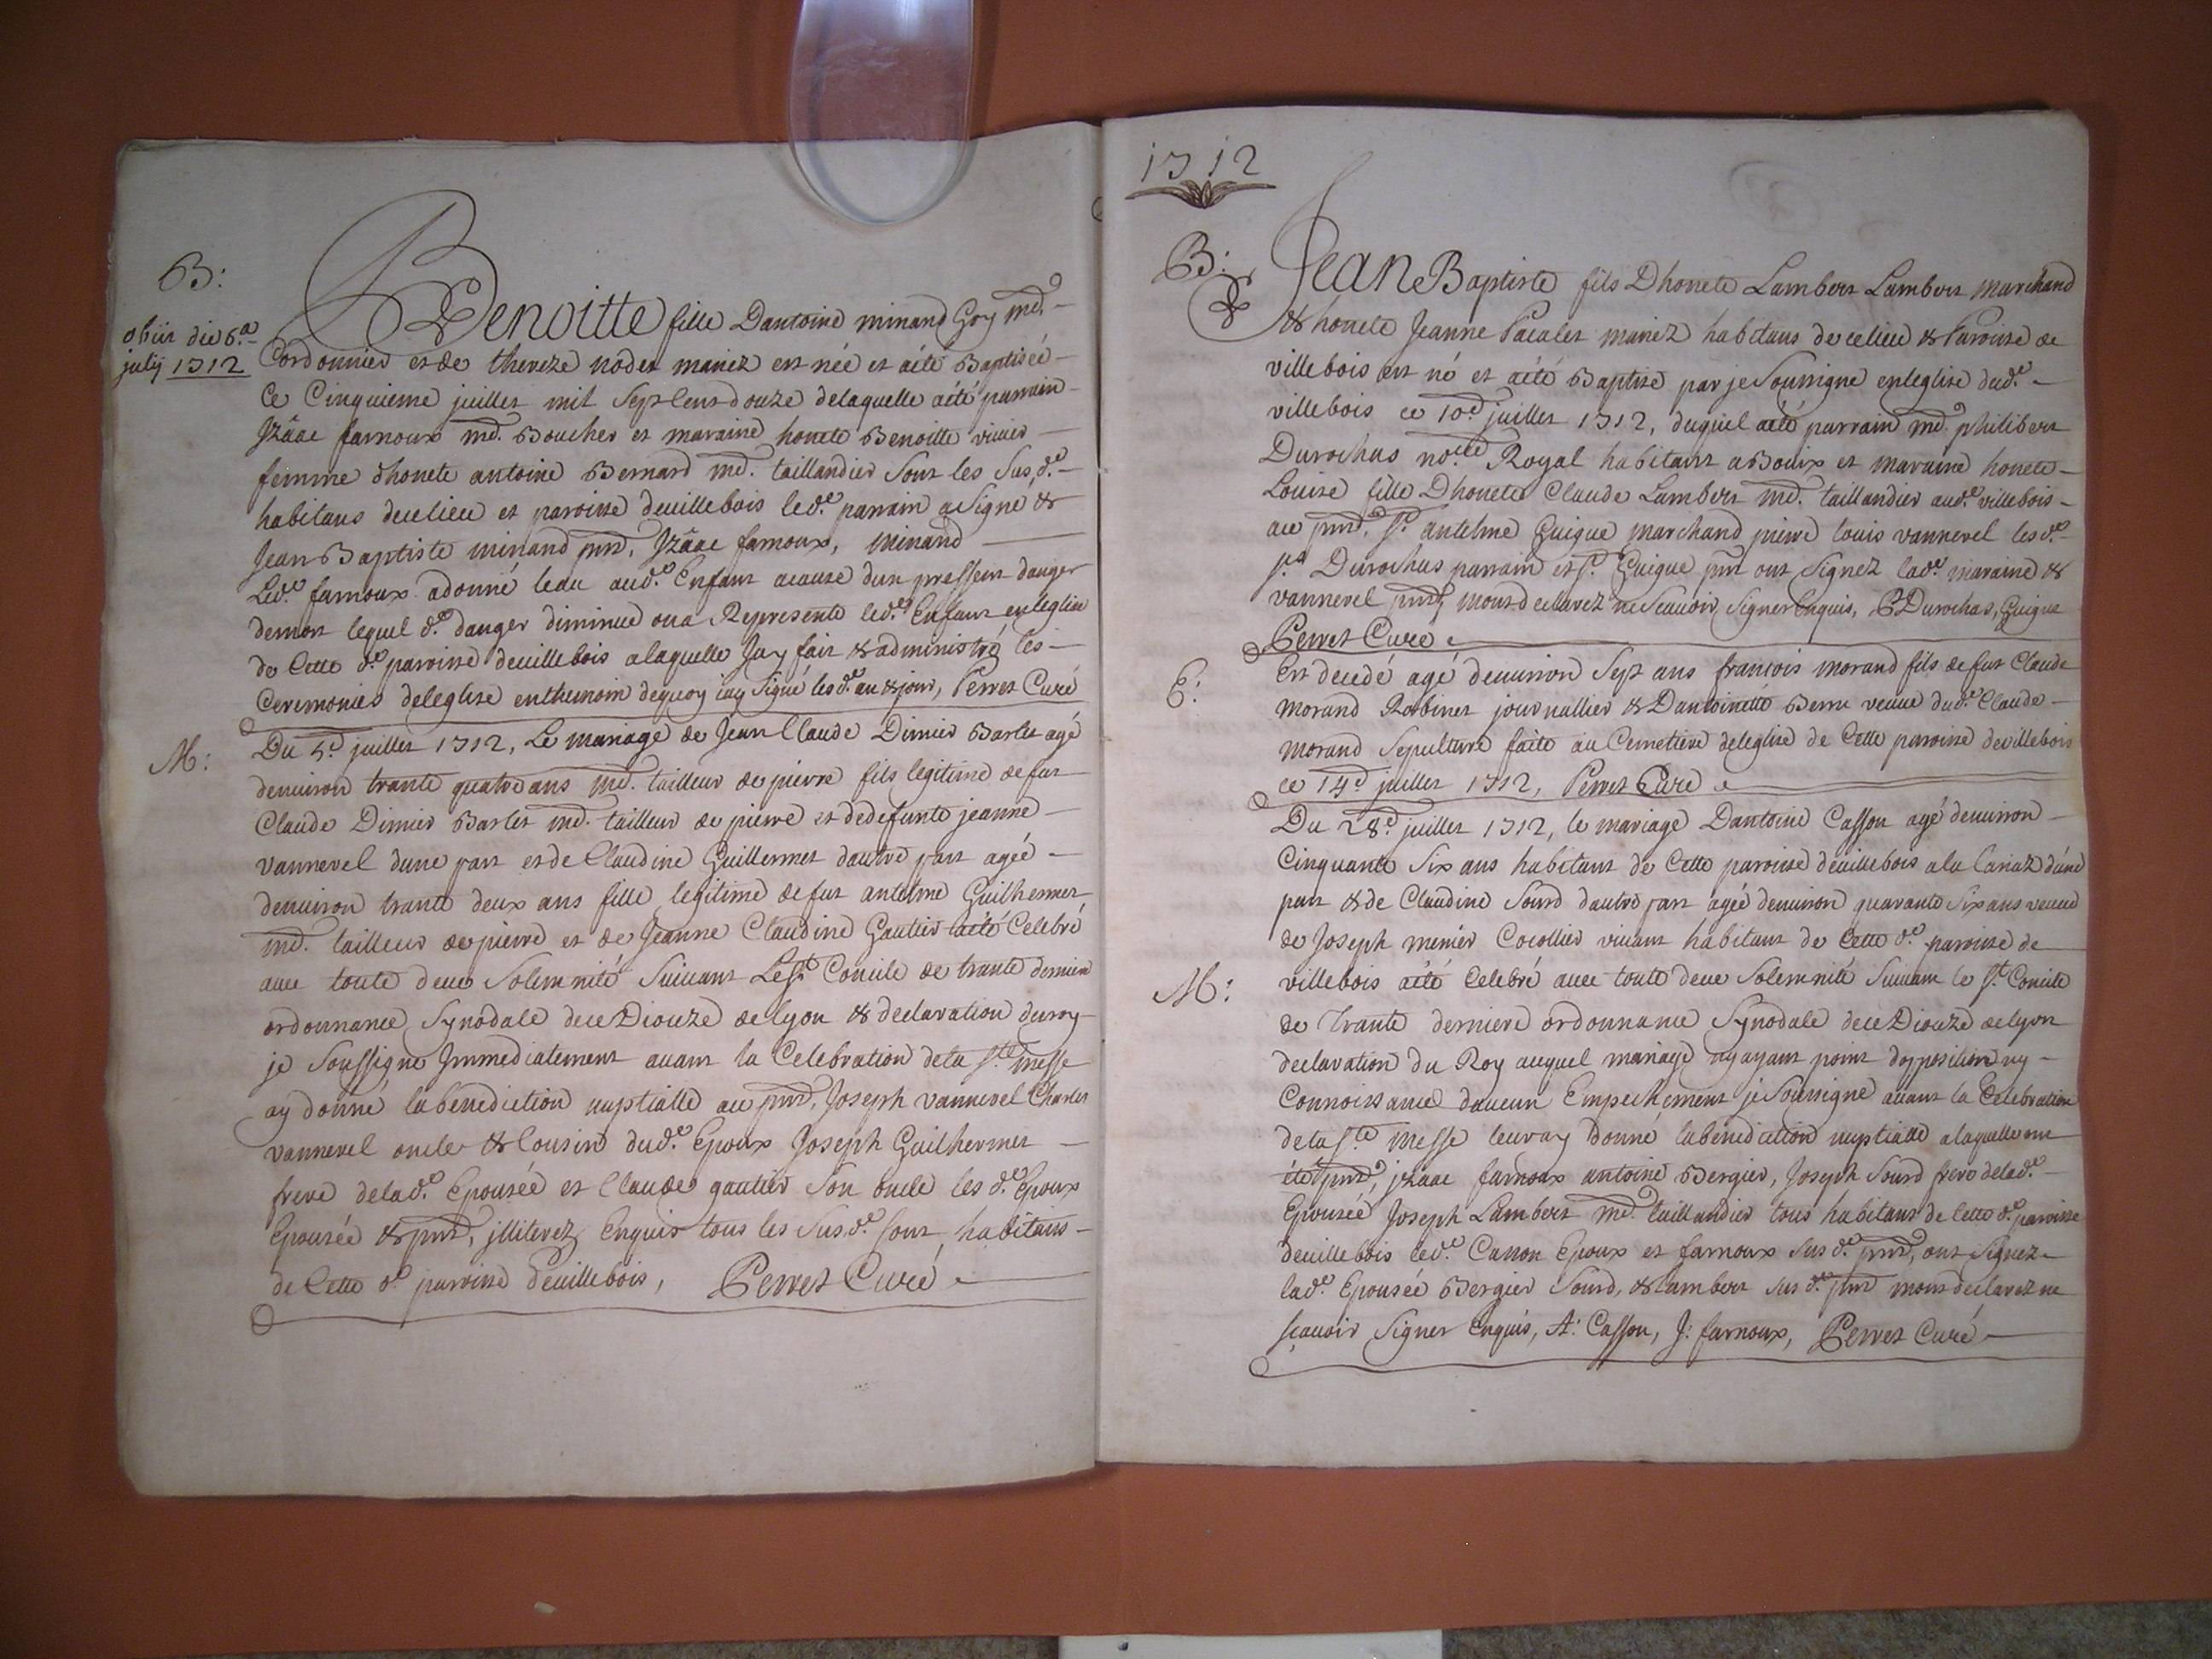 B:
obiit die 6.a
julij 1712
Benoitte fille Dantoine minand Goy md.
Cordonnier et de thereze nodet mariez est née et aété Baptisée
Ce Cinquieme juillet mil Sept Cens douze delaquelle aété parrain
Jzâac farnoux md. Boucher et maraine honete Benoitte vivier
femme dhonete antoine Bernard md. taillandier Sont les Sus d.e
habitans decelieu et paroisse devillebois led.e parrain a Signé &
Jean Baptiste minand pnt, Jzâac farnoux, minand
Led.e farnoux adonné leau aud.e Enfant acause dun pressent danger
demort lequel d.e danger diminue ona Represente led.e Enfant enleglise
de Cette d.e paroisse devillebois alaquelle Jay fait & administré les
Ceremonies deleglise enthemoin dequoy iay Signé lesd.e an & jour, Perret Curé
M:
Du 5.e juillet 1712, Le mariage de Jean Claude Dimier Barlet agé
denviron trante quatre ans md. tailleur de pierre fils legitime defut
Claude Dimier Barlet md. tailleur de pierre et dedefunte jeanne
vannerel dune part et de Claudine Guillermet dautre part ageé
denviron trante deux ans fille legitime defut antelme Guilhermet
md. tailleur de pierre et de Jeanne Claudine Gautier aété Celebré
avec toute deue Solemnité Suivant Le St Concile de trante derniere
ordonnance Synodale dece Diouze de lyon & declaration duroy
je Soussigné Jmmediatement avant la Celebration dela Ste messe
ay donné labenediction nuptialle au pnt, Joseph vannerel Charles
vannerel oncle & Cousin dud.e Epoux Joseph Guilhermet
frere delad.e Epouseé et Claude gautier Son oncle les d.e Epoux
Epouseé & pnt, jlliterez Enquis tous les Sus d.e Sont habitans
de Cette d.e paroisse devillebois, Perret Curé
1712
B:
Jean Baptiste fils Dhonete Lambert Lambert marchand
& honete Jeanne Pacalet mariez habitans decelieu & Paroisse de
villebois est né et aété Baptisé par je Soussigné enleglise dud.e
villebois ce 10.e juillet 1712, duquel aété parrain md. philibert
Durochas no.re Royal habitant a Bouix et maraine honete
Louise fille Dhonete Claude Lambert md. taillandier aud.e villebois
au pnt, s.r antelme Guigue marchand pierre louis vannerel les d.e
s.r Durochas parrain et s.r Guigue pnt ont Signez lad.e maraine &
vannerel pnt, mont declarez ne Scavoir Signer Enquis, P Durochas, Guigue
Perret Curé
E:
Est decedé agé denviron Sept ans francois morand fils de fut Claude
Morand Robinet journallier & Dantoinette Berru veuve dud.e Claude
Morand Sepulture faite au Cemetiere deleglise de Cette paroisse devillebois
ce 14.e juillet 1712, Perret Curé
M:
Du 28.e juillet 1712, le mariage Dantoine Casson agé denviron
Cinquante Six ans habitant de Cette paroisse devillebois ala Cariaz dune
part & de Claudine Sourd dautre part ageé denviron quarante Six ans veuve
de Joseph menier Cocollier vivant habitant de Cette d.e paroisse de
villebois aété Celebré avec toute deue Solemnité Suivant le St Concile
de trante derniere ordonnance Synodale dece Diouze de lyon
declaration du Roy auquel mariage nyayant point dopposition ny
Connoissance daucun Empechement je Soussigné avant la Celebration
dela Ste Messe leuray donné labenediction nuptialle alaquelle ont
été pnt, jzâac farnoux antoine Bergier, Joseph Sourd frere delad.e
Epouseé Joseph Lambert md. taillandier tous habitans de Cette d.e paroisse
devillebois led.e Casson Epoux et farnoux Sus d.e pnt, ont Signez
lad.e Epouseé Bergier Sourd, & Lambert Sus d.e pnt mont declarez ne
scavoir Signer Enquis, A: Casson, J: farnoux, Perret Curé